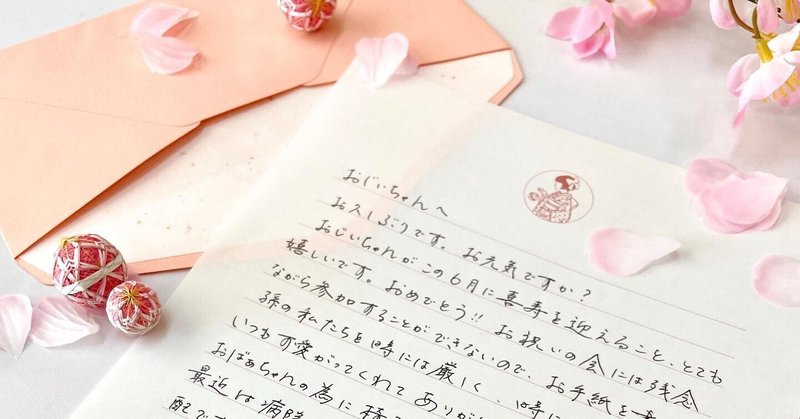 おじいちゃんへ
お久しぶりです。お元気ですか?
おじいちゃんがこの6月に喜寿を迎えること、とても
嬉しいです。おめでとう!! お祝いの会には残念
ながら参加することができないので、お手紙を
孫の私たちを時には厳しく、時に
いつも可愛がってくれてありが
おばあちゃんの為に
最近は病院
配で